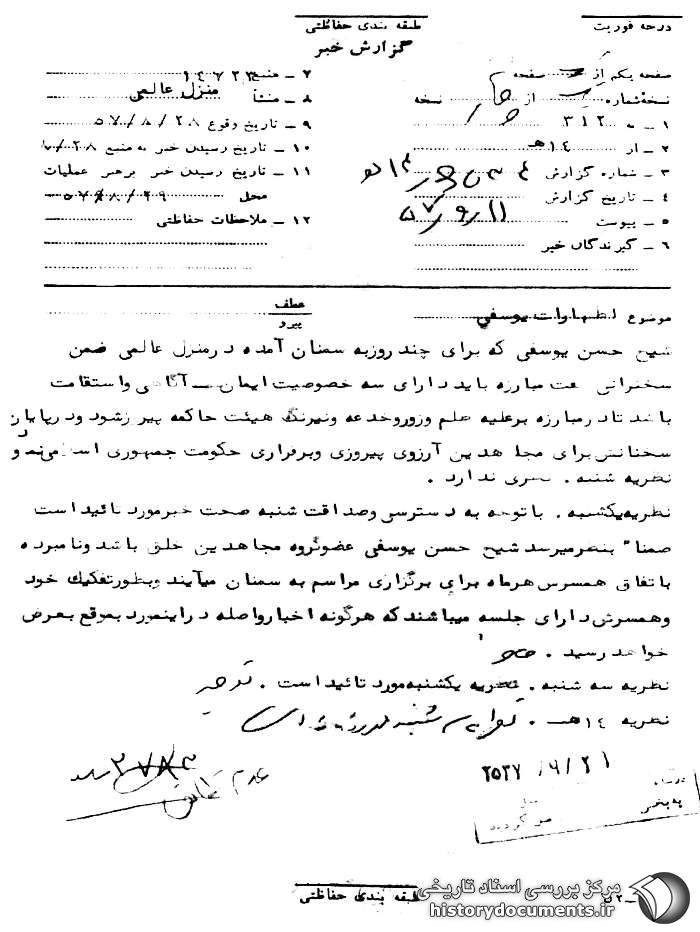 درجه فوریت
طبقه بندی حفاظتی
گزارش خبر
صفحه یکم از صفحه
نسخه شماره از نسخه
۱ ـ به ۳۱۲
۲ ـ از ۱۴هـ
۳ ـ شماره گزارش
۴ ـ تاریخ گزارش ۵۷/۹/۱۱
۵ ـ پیوست
۶ ـ گیرندگان خبر
۷ ـ منبع ۱۴۷۲۳
۸ ـ منشأ منزل عالمی
۹ ـ تاریخ وقوع ۵۷/۸/۲۸
۱۰ ـ تاریخ رسیدن خبر به منبع ۲۸
۱۱ ـ تاریخ رسیدن خبر برهبر عملیات
محل ۵۷/۸/۲۹
۱۲ ـ ملاحظات حفاظتی
موضوع اظهارات یوسفی
عطف
پیرو
شیخ حسن یوسفی که برای چند روزبه سمنان آمده درمنزل عالمی ضمن
سخنرانی گفت مبارزه باید دارای سه خصوصیت ایمان ـ آگاهی واستقامت
باشد تادرمبارزه برعلیه ظلم وزوروخدعه ونیرنگ هیئت حاکمه پیرزشود ودرپایان
سخنانش برای مجاهدین آرزوی پیروزی وبرقراری حکومت جمهوری اسلامی
نظریه شنبه . نظری ندارد .
نظریه یکشنبه . باتوجه به دسترسی وصداقت شنبه صحت خبرمورد تائید است
ضمنا" بنظرمیرسد شیخ حسن یوسفی عضوگروه مجاهدین خلق باشد ونامبرده
باتفاق همسرش هرماه برای برگزاری مراسم به سمنان میآیند وبطورتفکیک خود
وهمسرش دارای جلسه میباشند که هرگونه اخبارواصله دراینمورد بموقع بعرض
خواهد رسید .
نظریه سه شنبه . نظریه یکشنبه مورد تائید است .
نظریه ۱۴هـ . نظریه سه شنبه مورد تائید است
۲۵۳۷/۹/۲۱
به بخش
طبقه بندی حفاظتی
مرکز بررسی اسناد تاریخی
historydocuments.ir